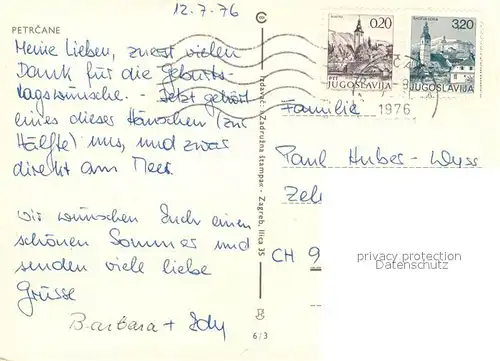 12.7.76
PETRČANE
Meine Lieben, zuerst vielen
Dank für die Geburts-
tagswünsche. - Jetzt gehört
eines dieser Häuschen (zur
Hälfte) uns, und zwar
direkt am Meer.
Wir wünschen Euch einen
schönen Sommer und
senden viele liebe
Grüsse
Barbara + Edy
Izdavač: »Zadružna štampa« - Zagreb, Ilica 35
6/3
0.20
PTT JUGOSLAVIJA
3.20
JUGOSLAVIJA
1976
Familie
Paul Huber-Wyss
Zel
CH 9
privacy protection
Datenschutz